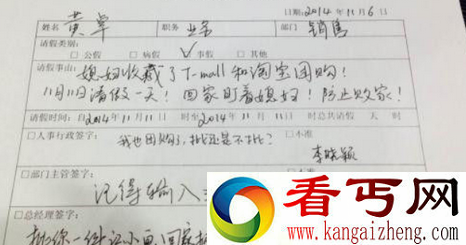 日期:2014年11月6日
姓名 黄卓 职务 业务 部门 销售
请假类别:
□公假 □病假 ☑事假 □其他
请假事由:
媳妇收藏了T-mall和淘宝团购!
11月11日请假一天!回家盯着媳妇!防止败家!
请假时间:自2014年11月11日 时至2014年11月11日 时总共请假 天 时
□人事行政签字: □不准
我也团购了,批还是不批?
李晓颖
□部门主管签字:
记得输入
□总经理签字:
看丐网
www.kangaizheng.com